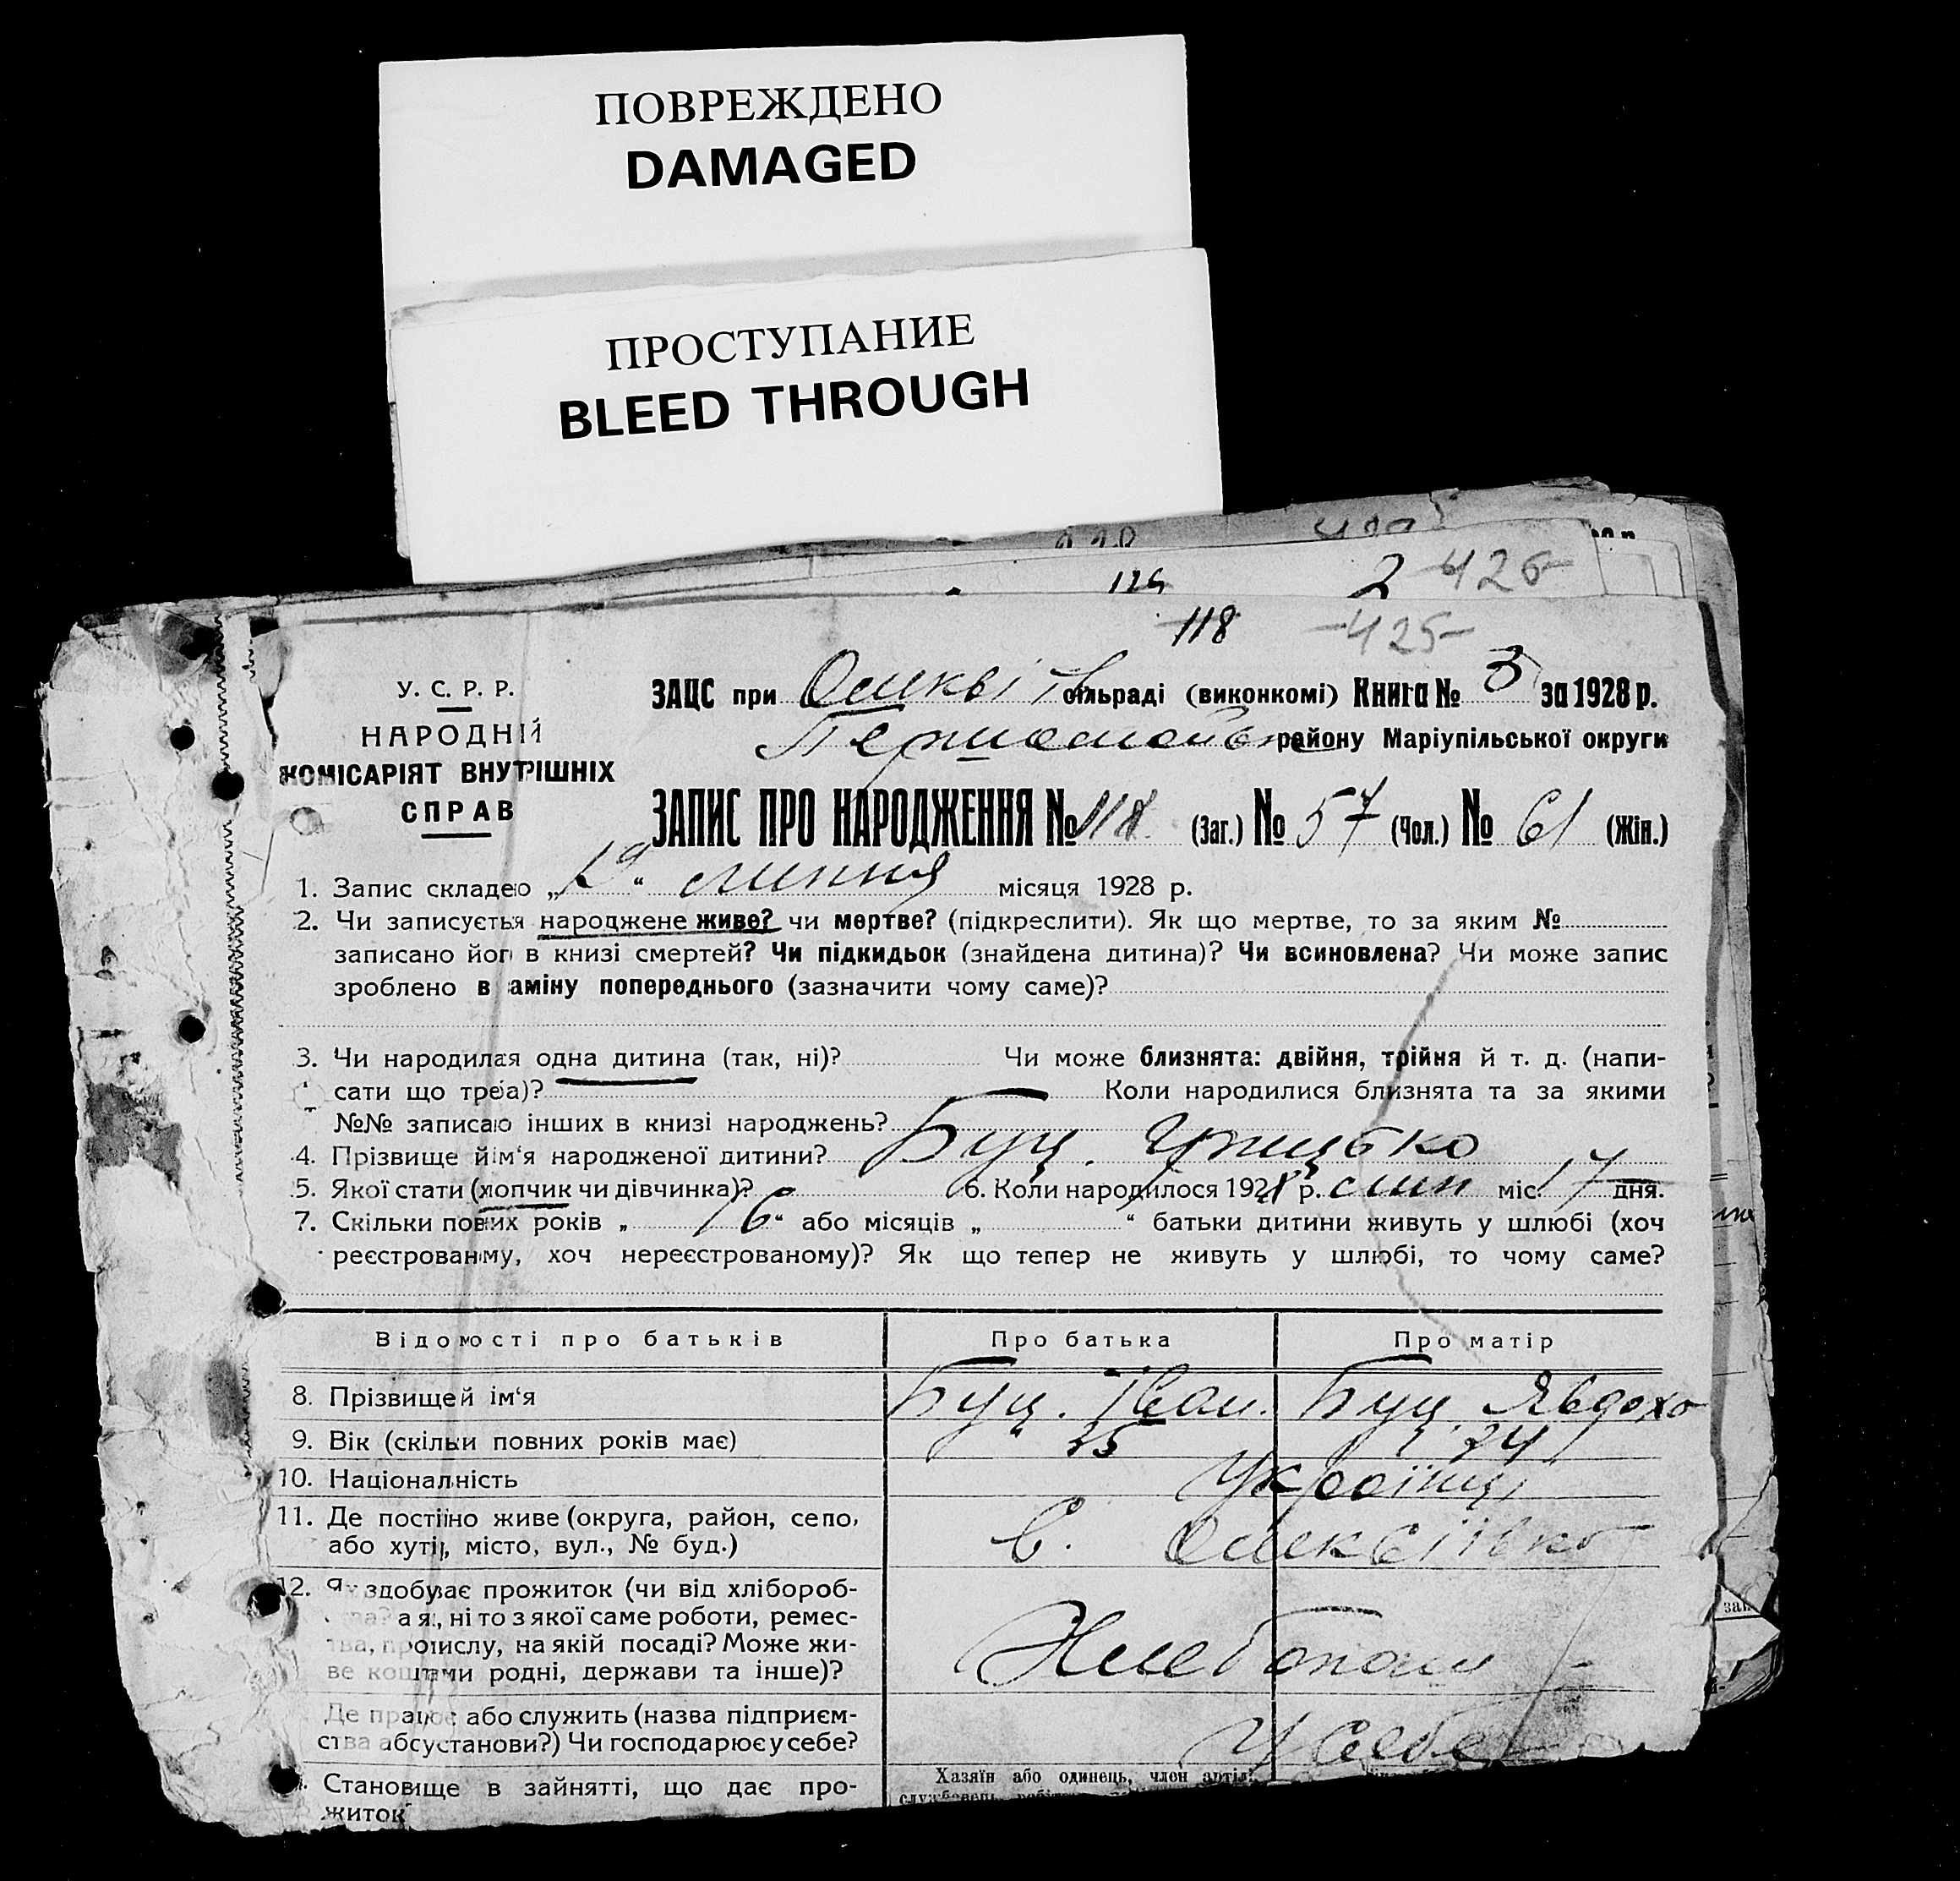 ПОВРЕЖДЕНО
DAMAGED
ПРОСТУПАНИЕ
BLEED THROUGH
2 426
126
118 425
У. С. Р. Р.
НАРОДНІЙ
КОМІСАРІЯТ ВНУТРІШНІХ
СПРАВ
ЗАЦС при сільраді (виконкомі) Книга № 3 за 1928 р.
району Маріупільської округи
ЗАПИС ПРО НАРОДЖЕННЯ № 118 (Заг.) № 57 (Чол.) № 61 (Жін.)
1. Запис складено „ “ липня місяця 1928 р.
2. Чи записується народжене живе? чи мертве? (підкреслити). Як що мертве, то за яким №
записано його в книзі смертей? Чи підкидьок (знайдена дитина)? Чи всиновлена? Чи може запис
зроблено в заміну попереднього (зазначити чому саме)?
3. Чи народилася одна дитина (так, ні)? Чи може близнята: двійня, трійня й т. д. (напи-
сати що треба)? Коли народилися близнята та за якими
№№ записано інших в книзі народжень?
4. Прізвище й ім‘я народженої дитини? Буц. Грицько
5. Якої стати (хлопчик чи дівчинка)? 6. Коли народилося 1928 р. лип міс. 17 дня.
7. Скільки повних років „ 6 “ або місяців „ “ батьки дитини живуть у шлюбі (хоч
реєстрованому, хоч нереєстрованому)? Як що тепер не живуть у шлюбі, то чому саме?
Відомості про батьків Про батька Про матір
8. Прізвище й ім‘я Буц. Іван. Буц Явдоха
9. Вік (скільки повних років має) 25 24
10. Національність Українці
11. Де постійно живе (округа, район, село,
або хутір, місто, вул., № буд.) с. Олексіївка
12. Як здобуває прожиток (чи від хлібороб-
ства? а як ні то з якої саме роботи, ремес-
тва, промислу, на якій посаді? Може жи-
ве коштами родні, держави та інше)? Хлебопаш
Де працює або служить (назва підприєм-
ства або установи?) Чи господарює у себе? У себе
Становище в зайнятті, що дає про-
житок
Хазяїн або одинець, член артілі,